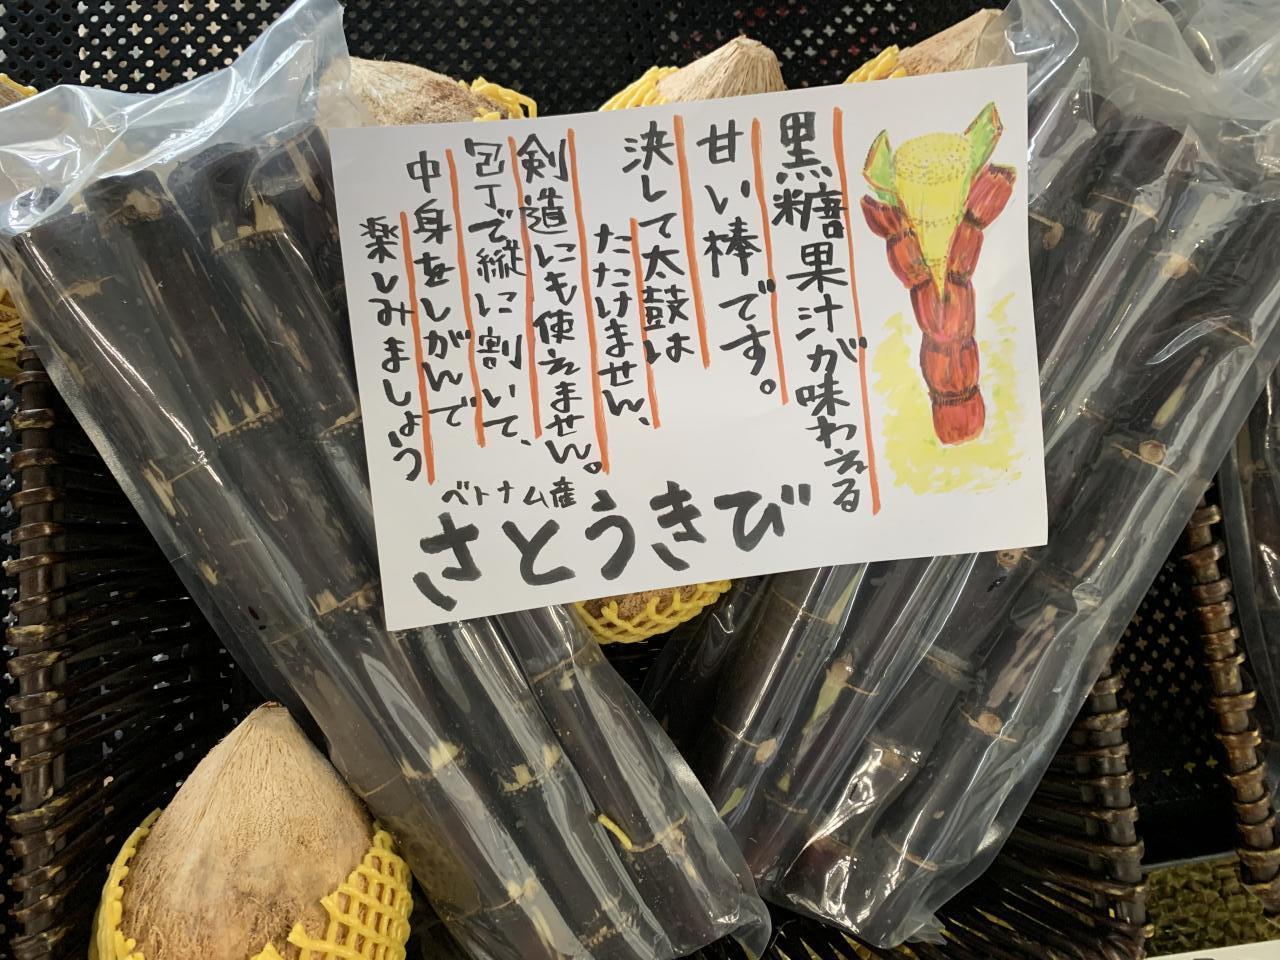 黒糖果汁が味わえる
甘い棒です。
決して太鼓は
たたけません、
剣道にも使えません。
包丁で縦に割いて、
中身をしがんで
楽しみましょう
ベトナム産
さとうきび